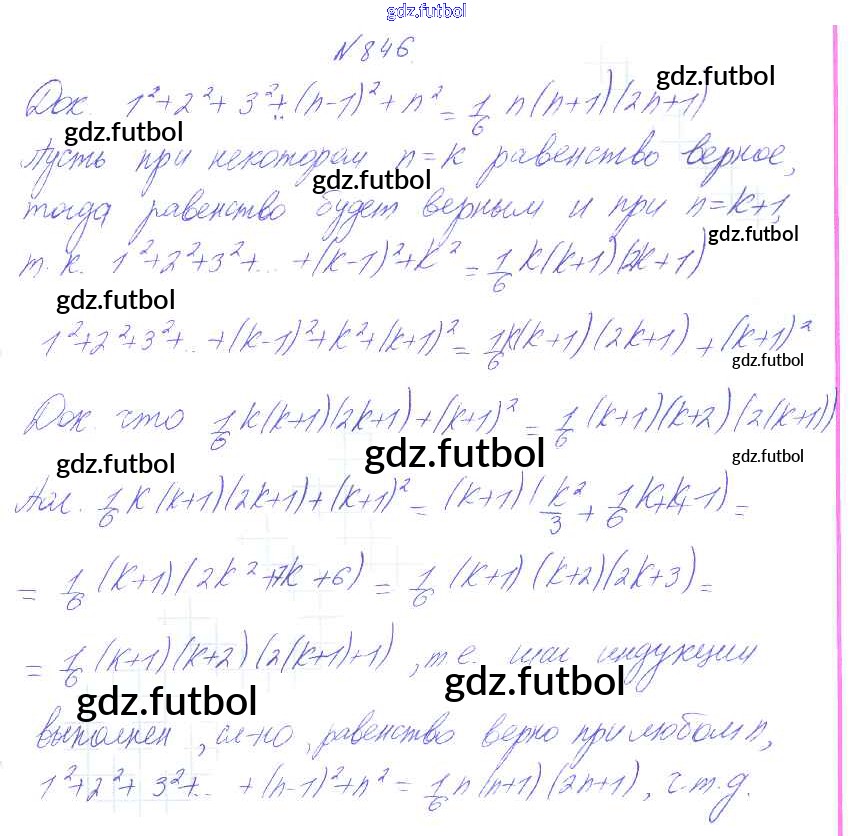 gdz.futbol
N 846.
gdz.futbol
Док. 1²+2²+3²+...(n-1)²+n² = 1/6 n(n+1)(2n+1)
gdz.futbol
Пусть при некотором n=k равенство верное,
gdz.futbol
тогда равенство будет верным и при n=k+1,
gdz.futbol
т.к. 1²+2²+3²+... +(k-1)²+k² = 1/6 k(k+1)(2k+1)
gdz.futbol
1²+2²+3²+... +(k-1)²+k²+(k+1)² = 1/6 k(k+1)(2k+1) + (k+1)²
gdz.futbol
Док. что 1/6 k(k+1)(2k+1)+(k+1)² = 1/6 (k+1)(k+2)(2(k+1))
gdz.futbol
gdz.futbol
gdz.futbol
1/6 k(k+1)(2k+1)+(k+1)² = (k+1)(k²/3 + 1/6 k+k+1) =
= 1/6 (k+1)(2k²+7k+6) = 1/6 (k+1)(k+2)(2k+3) =
= 1/6 (k+1)(k+2)(2(k+1)+1), т.е. шаг индукции
gdz.futbol
gdz.futbol
выполнен, сл-но, равенство верно при любом n,
1²+2²+3²+... +(n-1)²+n² = 1/6 n(n+1)(2n+1), ч.т.д.